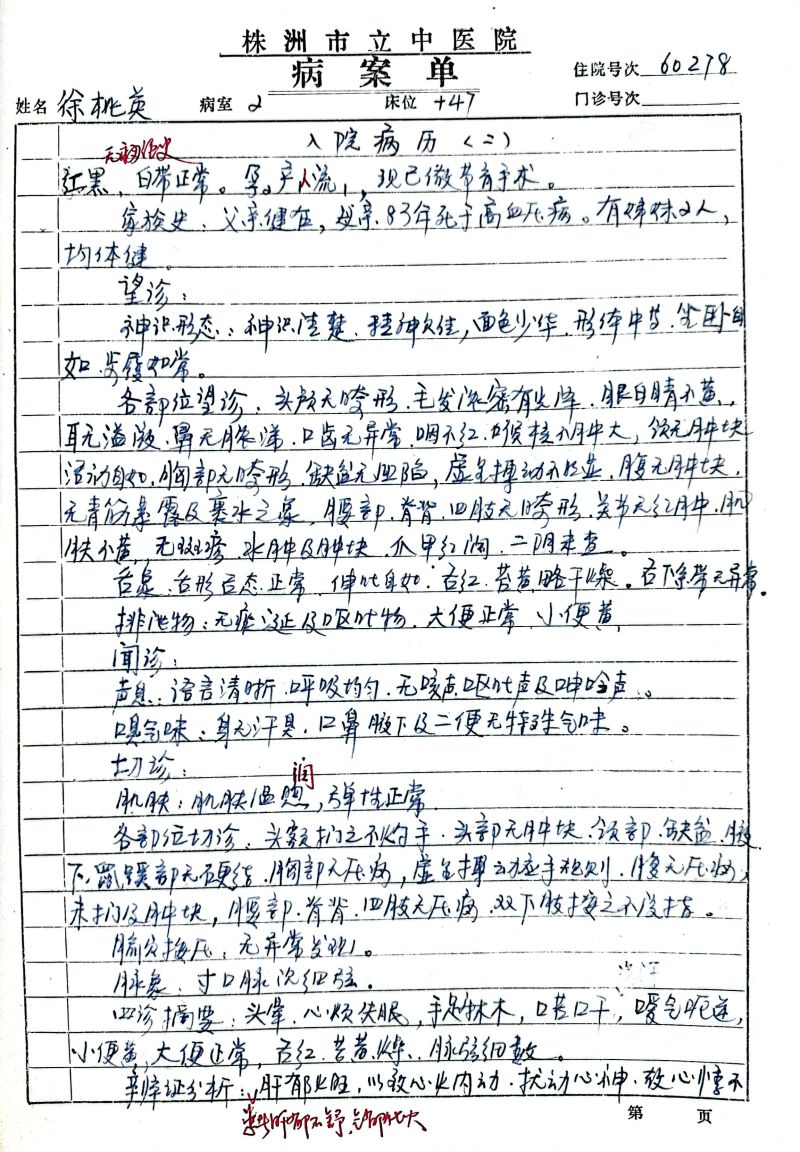 株洲市立中医院
病案单
住院号次 60278
姓名 徐桃英 病室 2 床位 +47 门诊号次
入院病历（二）
无痛经史
红黑，白带正常。孕2产1人流1，现已做节育手术。
家族史：父亲健在，母亲83年死于高血压病。有姊妹2人，
均体健。
望诊：
神识形态：神识清楚，精神欠佳，面色少华，形体中等，坐卧自
如，步履如常。
各部位望诊：头颅无畸形，毛发浓密有光泽，眼白睛不黄，
耳无溢液，鼻无脓涕，口齿无异常，咽不红，喉核不肿大，颈无肿块
活动自如，胸部无畸形，缺盆无凹陷，虚里搏动不明显，腹无肿块，
无青筋暴露及裹水之象，腰部、脊背、四肢无畸形，关节无红肿，肌
肤不黄，无斑疹、水肿及肿块，爪甲红润，二阴未查。
舌象：舌形舌态正常，伸吐自如，舌红，苔黄略干燥。舌下系带无异常。
排泄物：无痰涎及呕吐物，大便正常，小便黄，
闻诊：
声息：语言清晰，呼吸均匀，无咳声、呕吐声及呻吟声。
嗅气味：身无汗臭，口鼻腋下及二便无特殊气味。
切诊：
润
肌肤：肌肤温，弹性正常
各部位切诊：头额扪之不灼手，头部无肿块，颈部、缺盆、腋
下、鼠蹊部无硬结，胸部无压痛，虚里搏动应手规则，腹无压痛，
未扪及肿块，腰部、脊背、四肢无压痛，双下肢按之不没指。
腧穴按压：无异常发现。
脉象：寸口脉沉细弦。
四诊摘要：头晕，心烦失眠，手足麻木，口苦口干，嗳气呃逆，
小便黄，大便正常，舌红，苔黄燥，脉弦细数。
辨证分析：肝郁火旺，以致心火内动，扰动心神，致心悸不
肝郁不舒，气郁化火
第 页